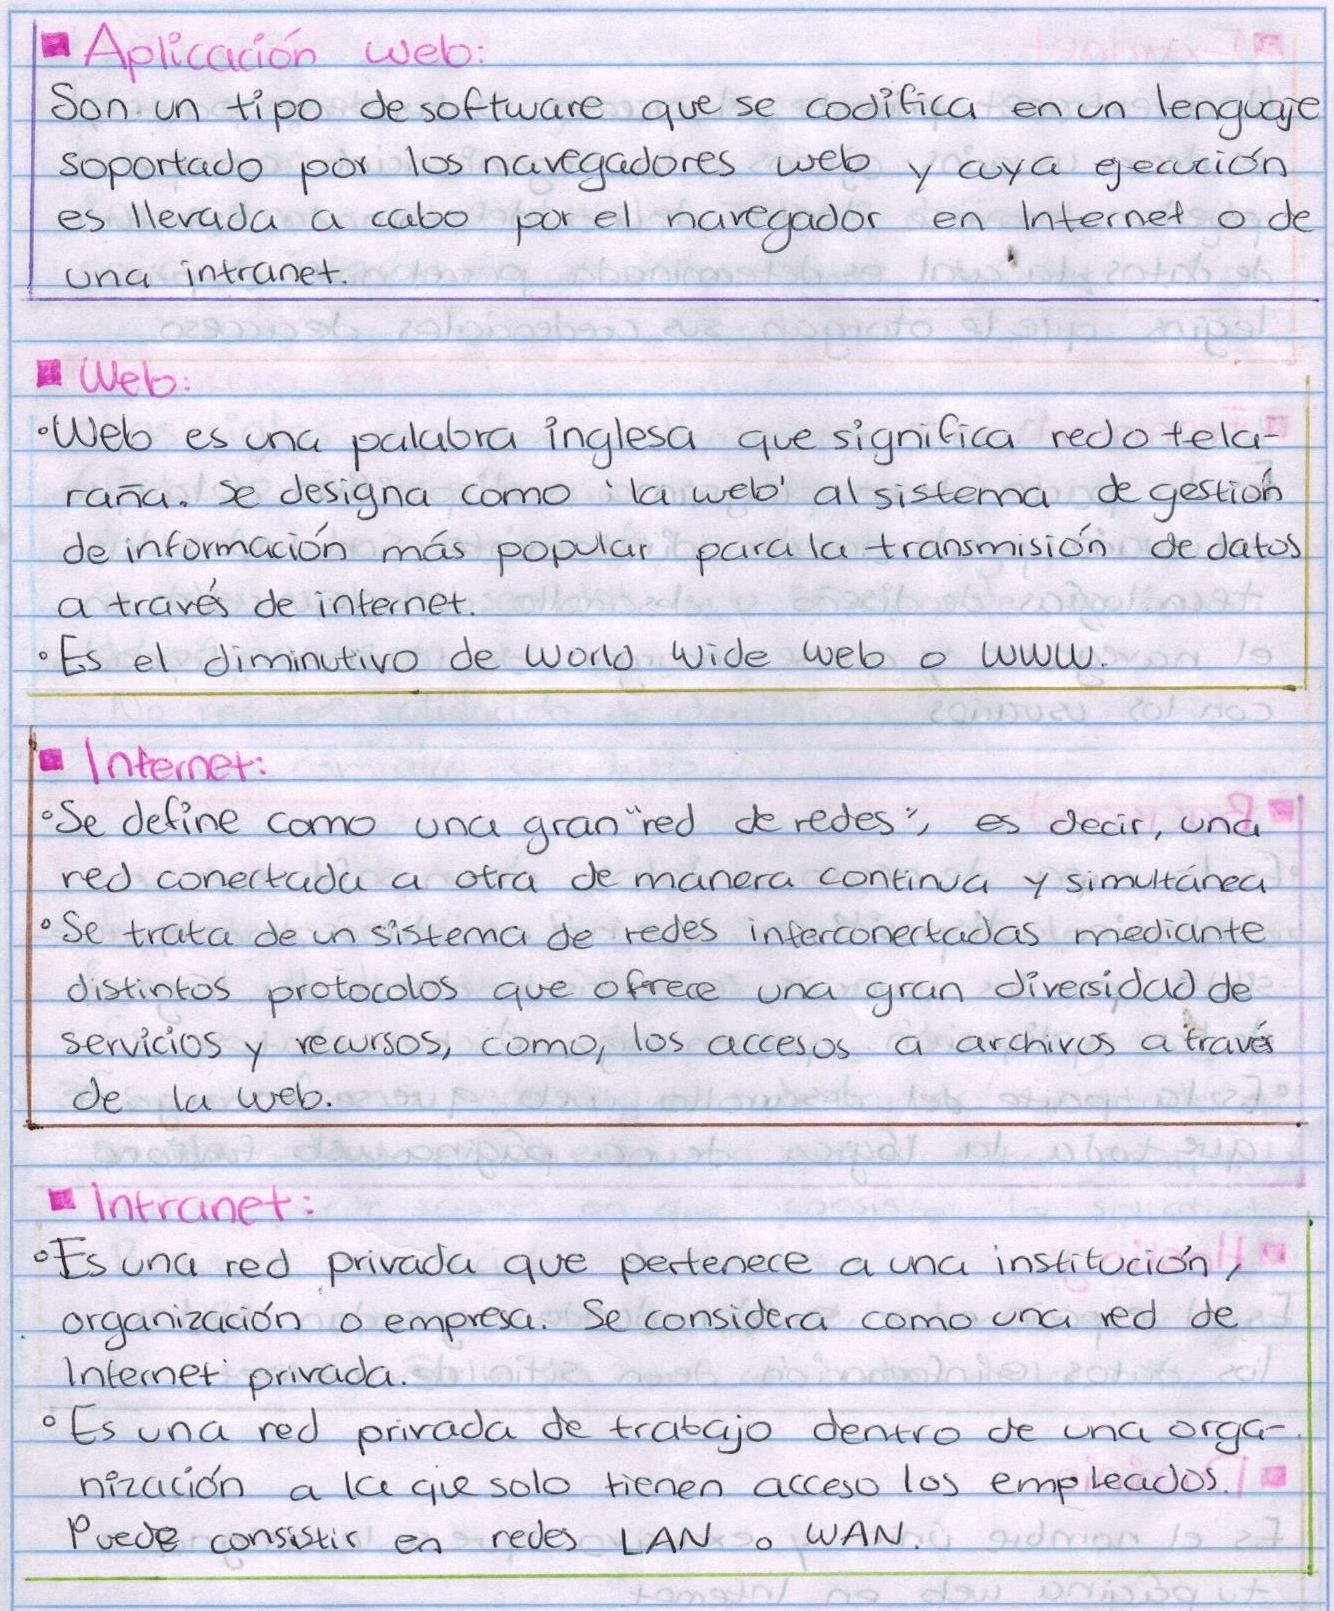 Aplicación web:
Son un tipo de software que se codifica en un lenguaje
soportado por los navegadores web y cuya ejecución
es llevada a cabo por el navegador en Internet o de
una intranet.
Web:
• Web es una palabra inglesa que significa red o tela-
raña. Se designa como 'la web' al sistema de gestión
de información más popular para la transmisión de datos
a través de internet.
• Es el diminutivo de World Wide Web o WWW.
Internet:
• Se define como una gran "red de redes", es decir, una
red conectada a otra de manera continua y simultánea
• Se trata de un sistema de redes interconectadas mediante
distintos protocolos que ofrece una gran diversidad de
servicios y recursos, como, los accesos a archivos a través
de la web.
Intranet:
• Es una red privada que pertenece a una institución,
organización o empresa. Se considera como una red de
Internet privada.
• Es una red privada de trabajo dentro de una orga-
nización a la que solo tienen acceso los empleados.
Puede consistir en redes LAN o WAN.